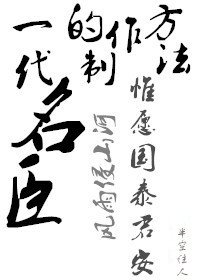 一代名臣的制作方法
风雨侵山河
惟愿国泰君安
半空佳人